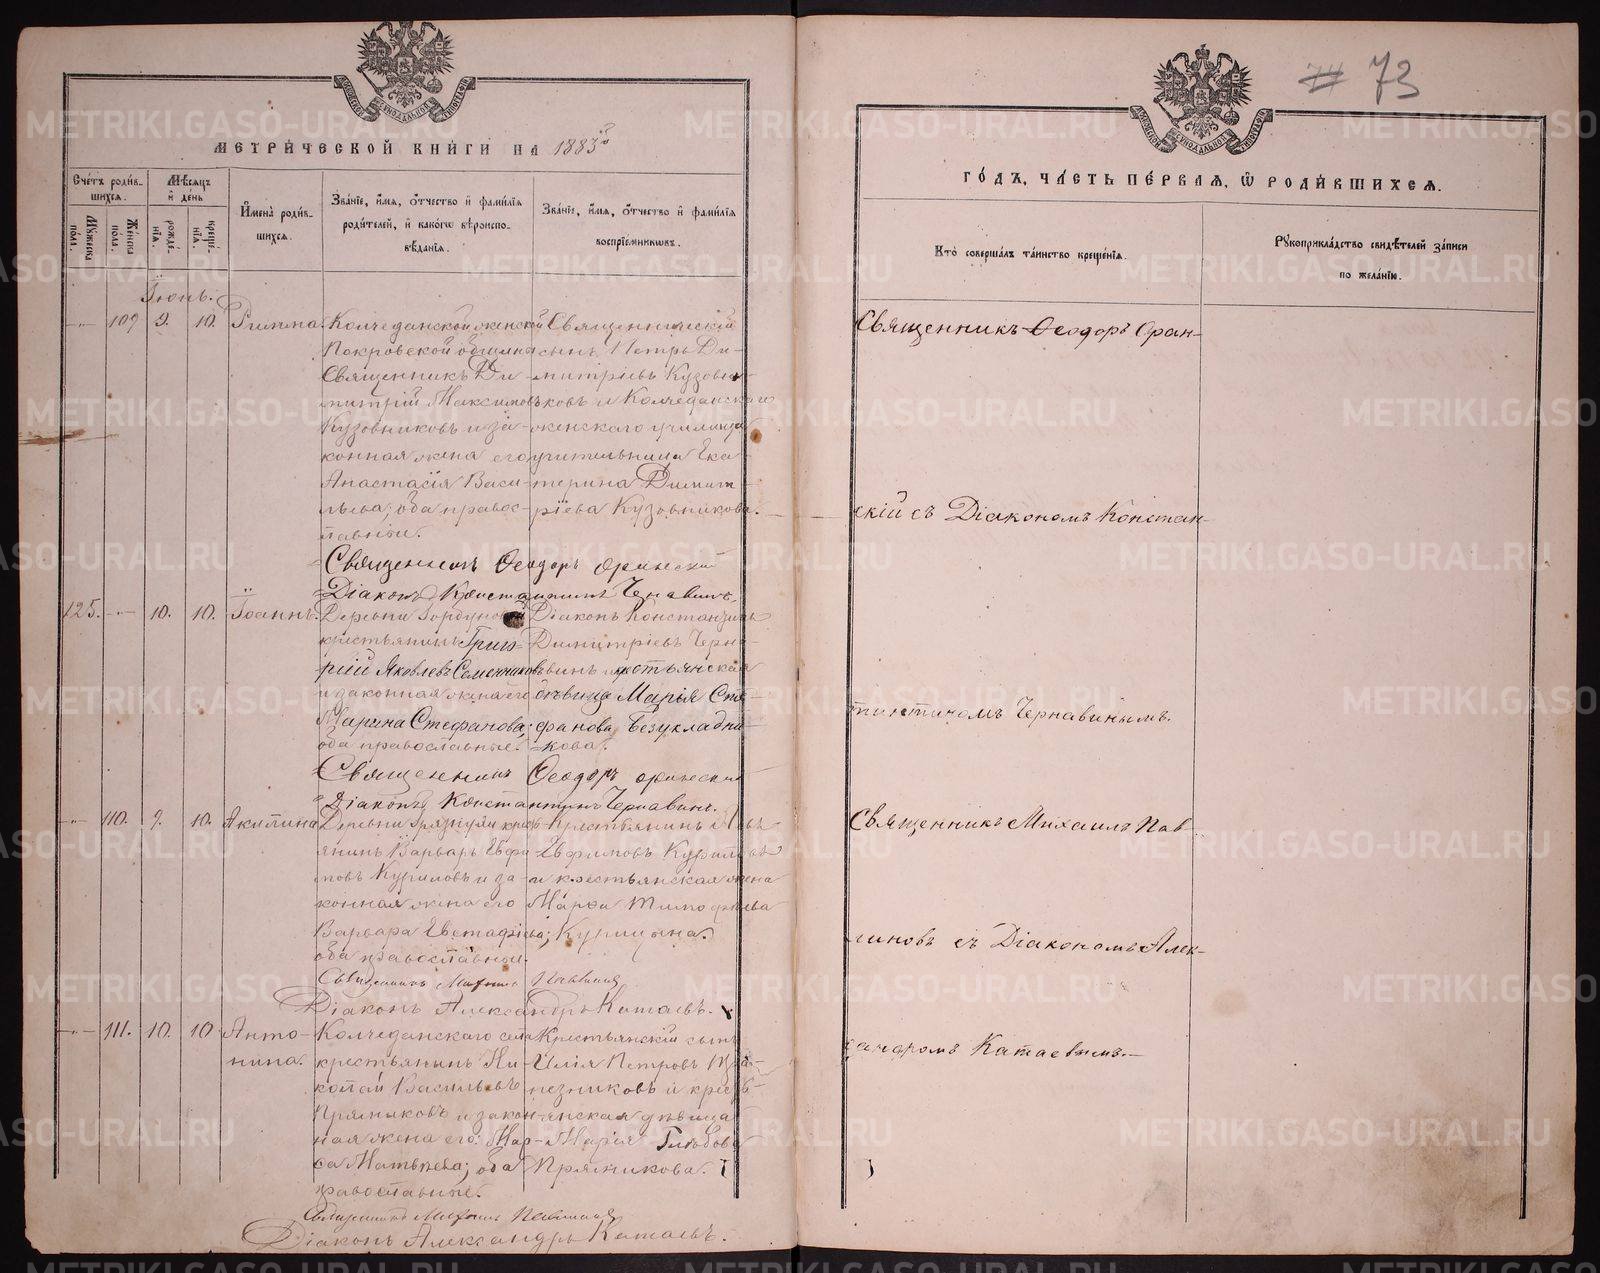 МЕТРИЧЕСКОЙ КНИГИ НА 1883й
Счетъ родив-
шихся.
Мѣсяцъ
и день
Мужеска
пола.
Женска
пола.
рожде-
нія.
креще-
нія.
Имена родив-
шихся.
Званіе, имя, отчество и фамилія
родителей, и какого вѣроиспо-
вѣданія.
Званіе, имя, отчество и фамилія
воспріемниковъ.
Іюнь.
109 9. 10. Римма.
Колчеданской женской
Покровской общины
Священникъ Ди-
митрій Максимовъ
Кузовниковъ и за-
конная жена его
Анастасія Васи-
льева; оба правос-
лавные.
Священническій
сынъ Петръ Ди-
митріевъ Кузовни-
ковъ и Колчеданскаго
женскаго училища
учительница Ека-
терина Димит-
ріева Кузовникова.
Священникъ Ѳеодоръ
Діаконъ Константинъ Чернавинъ.
125. 10. 10. Іоаннъ.
Деревни Горбуновой
крестьянинъ Григо-
рій Яковлевъ Семенниковъ
и законная жена его
Марина Стефанова;
оба православные.
Діаконъ Константинъ
Димитріевъ Черна-
винъ и крестьянская
дѣвица Марія Сте-
фанова Безукладни-
кова.
Священникъ Ѳеодоръ
Діаконъ Константинъ Чернавинъ.
110. 9. 10. Акилина
Деревни
янинъ Варваръ Евфи-
мовъ Куриловъ и за-
конная жена его
Варвара Евстафіева;
оба православные.
Крестьянинъ
Евфимовъ Куриловъ
и крестьянская жена
Марѳа Тимофѣева
Курицына.
Священникъ Михаилъ
Діаконъ Александръ Катаевъ.
111. 10. 10 Анто-
нина.
Колчеданскаго села
крестьянинъ Ни-
колай Васильевъ
Пряниковъ и закон-
ная жена его Мар-
ѳа Матвѣева; оба
православные.
Крестьянскій сынъ
Илія Петровъ
и крест-
янская дѣвица
Марія Глѣбова
Пряникова.
Священникъ Михаилъ
Діаконъ Александръ Катаевъ.
73
ГОДЪ, ЧАСТЬ ПЕРВАЯ, Ѿ РОДИВШИХСЯ.
Кто совершалъ таинство крещенія.
Рукоприкладство свидѣтелей записи
по желанію.
Священникъ Ѳеодоръ Оран-
скій съ Діакономъ Констан-
тиномъ Чернавинымъ.
Священникъ Михаилъ Пав-
линовъ съ Діакономъ Алек-
сандромъ Катаевымъ.
METRIKI.GASO-URAL.RU